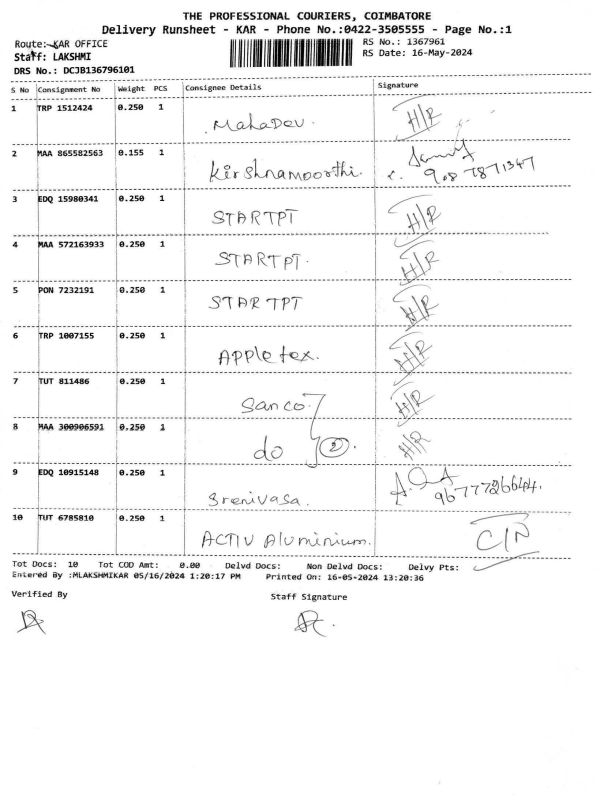 THE PROFESSIONAL COURIERS, COIMBATORE
Delivery Runsheet - KAR - Phone No.:0422-3505555 - Page No.:1
Route: KAR OFFICE RS No.: 1367961
Staff: LAKSHMI RS Date: 16-May-2024
DRS No.: DCJB136796101
S No Consignment No Weight PCS Consignee Details Signature
1 TRP 1512424 0.250 1 MahaDev. H/R
2 MAA 865582563 0.155 1 Kirshnamoorthi.
3 EDQ 15980341 0.250 1 STARTPT H/R
4 MAA 572163933 0.250 1 STARTPT. H/R
5 PON 7232191 0.250 1 STARTPT H/R
6 TRP 1007155 0.250 1 Appletex. H/R
7 TUT 811486 0.250 1 Sanco H/R
8 MAA 300906591 0.250 1 do 2 H/R
9 EDQ 10915148 0.250 1 Srenivasa.
10 TUT 6785810 0.250 1 ACTIV Aluminium. C/N
Tot Docs: 10 Tot COD Amt: 0.00 Delvd Docs: Non Delvd Docs: Delvy Pts:
Entered By :MLAKSHMIKAR 05/16/2024 1:20:17 PM Printed On: 16-05-2024 13:20:36
Verified By Staff Signature